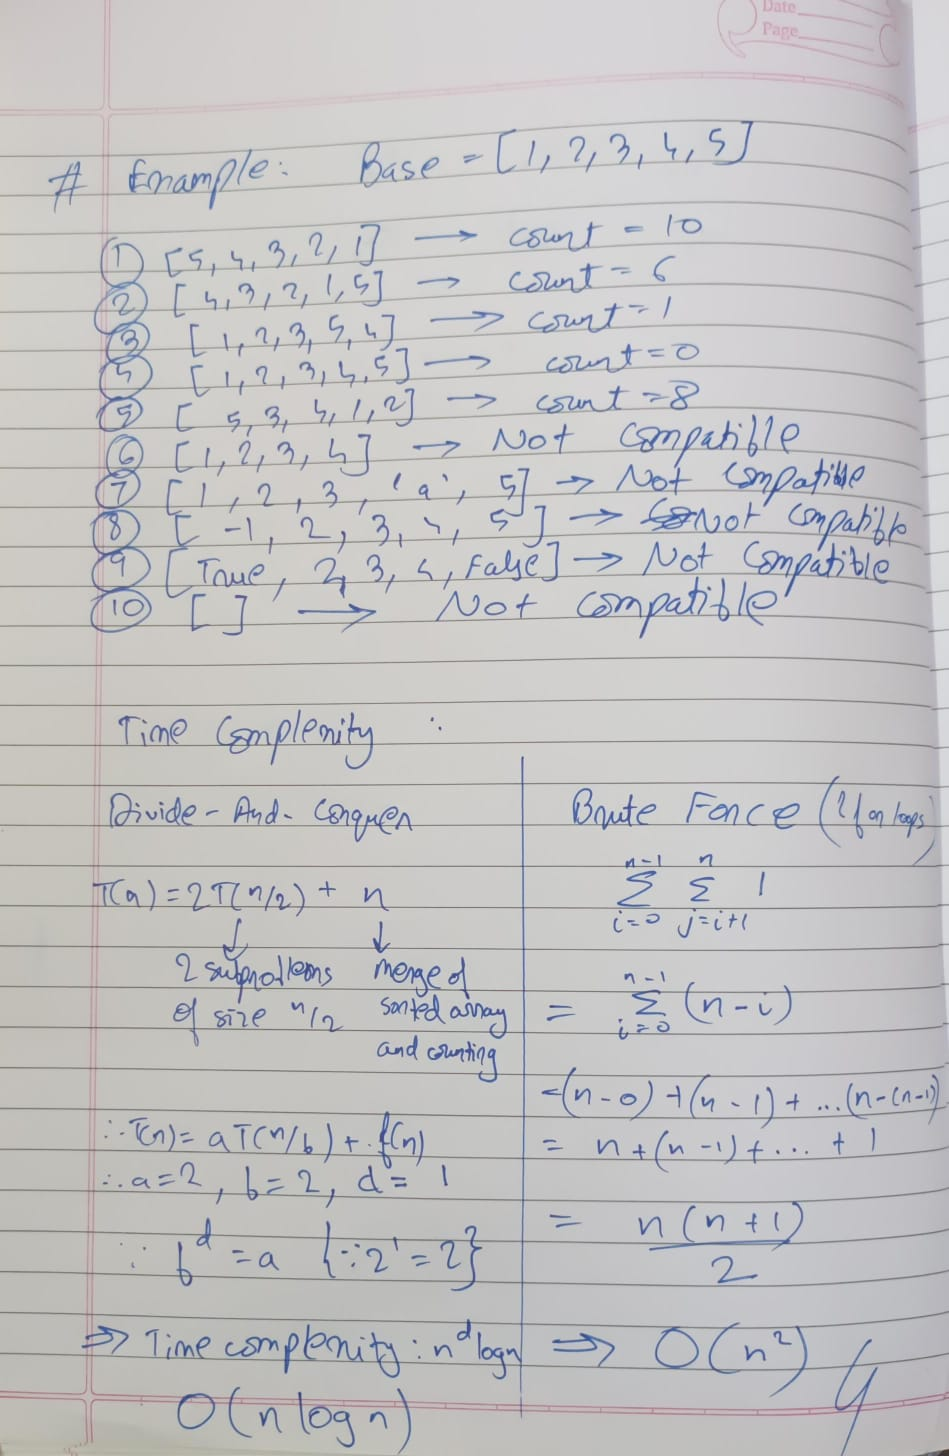 Date
Page
# Example: Base = [1, 2, 3, 4, 5]
① [5, 4, 3, 2, 1] → count = 10
② [4, 3, 2, 1, 5] → count = 6
③ [1, 2, 3, 5, 4] → count = 1
④ [1, 2, 3, 4, 5] → count = 0
⑤ [5, 3, 4, 1, 2] → count = 8
⑥ [1, 2, 3, 4] → Not Compatible
⑦ [1, 2, 3, 'a', 5] → Not Compatible
⑧ [-1, 2, 3, 4, 5] → Not Compatible
⑨ [True, 2, 3, 4, False] → Not Compatible
⑩ [ ] → Not Compatible
Time Complexity :
Divide-And-Conquer
T(n) = 2T(n/2) + n
↓ ↓
2 subproblems merge of
of size n/2 sorted array
and counting
∴ T(n) = aT(n/b) + f(n)
∴ a=2, b=2, d=1
∴ b^d = a {∵ 2^1 = 2}
⇒ Time complexity : n^d logn
O(n logn)
Brute Force (2 for loops)
n-1 n
Σ Σ 1
i=0 j=i+1
n-1
= Σ (n-i)
i=0
= (n-0) + (n-1) + ...(n-(n-1))
= n + (n-1) + ... + 1
= n(n+1)
2
⇒ O(n²)